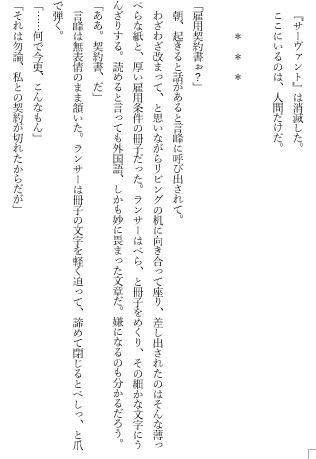 『サーヴァント』は消滅した。
ここにいるのは、人間だけだ。
＊　＊　＊
「雇用契約書ぉ？」
朝、起きると話があると言峰に呼び出されて。
わざわざ改まって、と思いながらリビングの机に向き合って座り、差し出されたのはそんな薄っ
ぺらな紙と、厚い雇用条件の冊子だった。ランサーはぺら、と冊子をめくり、その細かな文字にう
んざりする。読めると言っても外国語、しかも妙に畏まった文章だ。嫌になるのも分かるだろう。
「ああ。契約書、だ」
言峰は無表情のまま頷いた。ランサーは冊子の文字を軽く追って、諦めて閉じるとべしっ、と爪
で弾く。
「……何で今更、こんなもん」
「それは勿論、私との契約が切れたからだが」